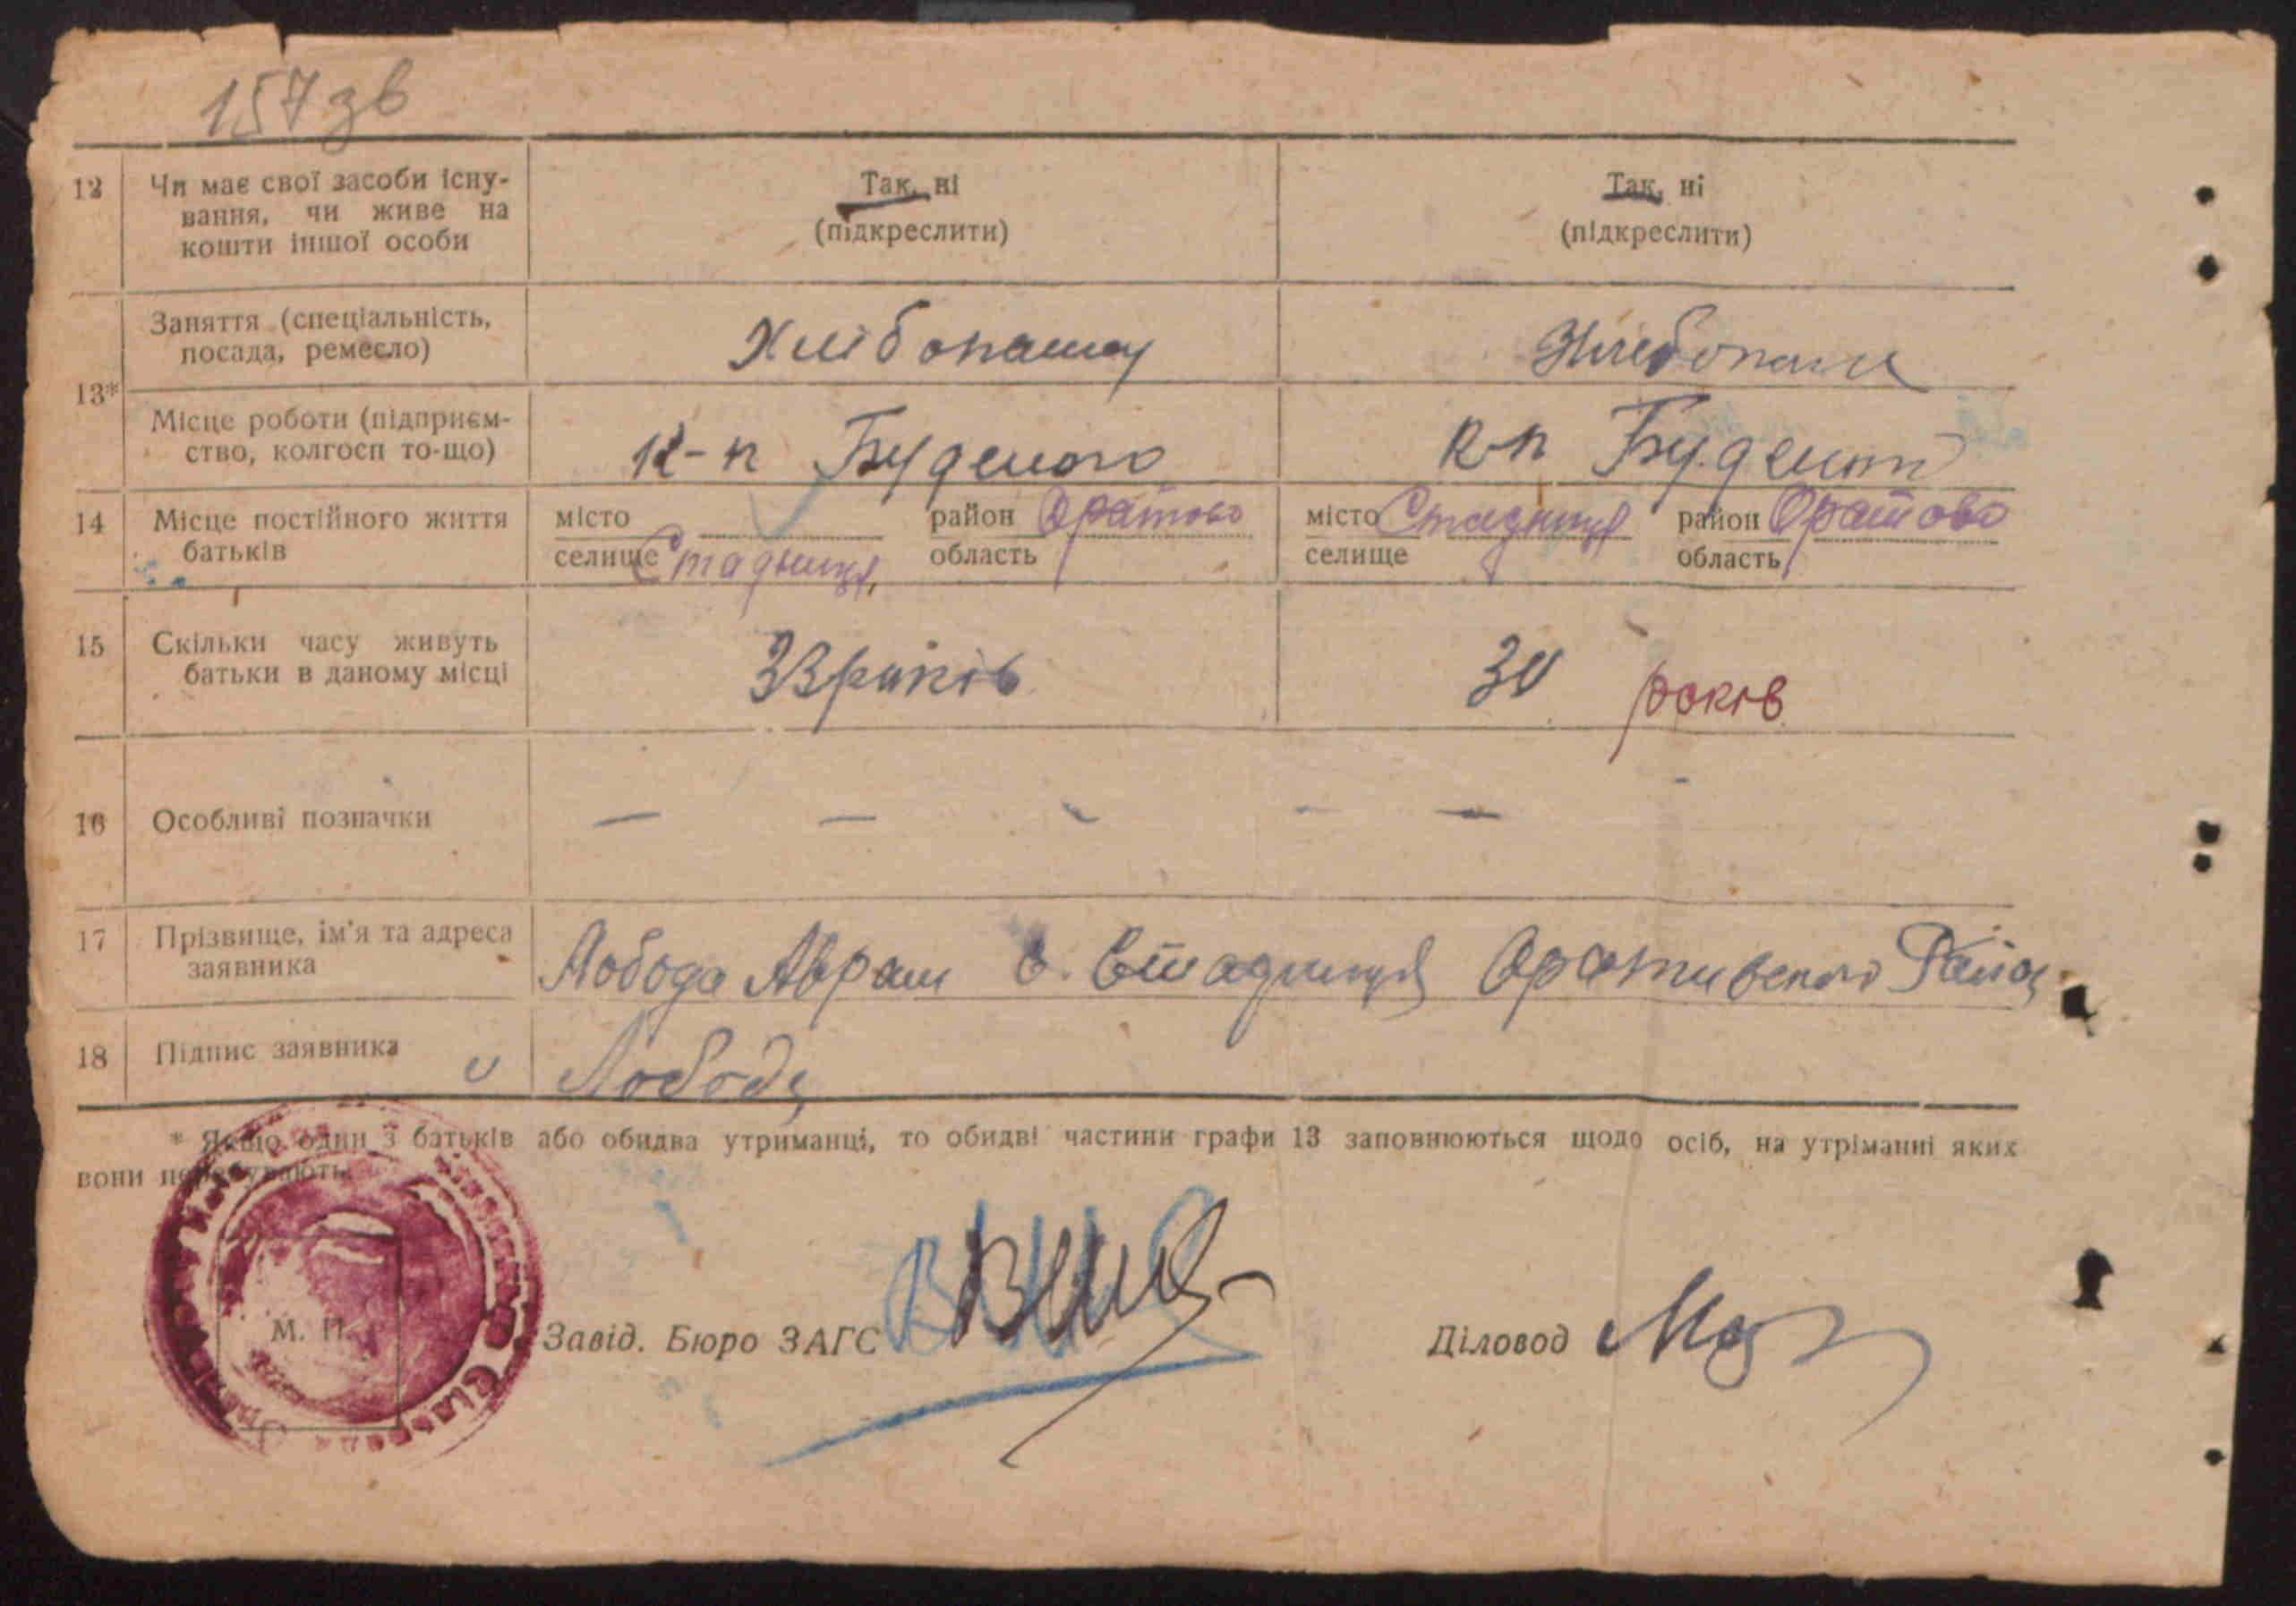 157зв
12 Чи має свої засоби існу-
вання, чи живе на
кошти іншої особи
Так, ні
(підкреслити)
Так, ні
(підкреслити)
13*
Заняття (спеціальність,
посада, ремесло)
Хлібопашец
Хлебопаш
Місце роботи (підприєм-
ство, колгосп то-що)
к-п Буденого
к-п Буденого
14 Місце постійного життя
батьків
місто
селище Стадниця
район Оратово
область
місто Стадниця
селище
район Оратово
область
15 Скільки часу живуть
батьки в даному місці
33 років
30 років
16 Особливі позначки
— — — — —
17 Прізвище, ім'я та адреса
заявника
Лобода Аврам с. Стадниця Оративского Району
18 Підпис заявника
Лобода
* Якщо один з батьків або обидва утриманці, то обидві частини графи 13 заповнюються щодо осіб, на утріманні яких
вони перебувають.
М. П.
Завід. Бюро ЗАГС
Діловод